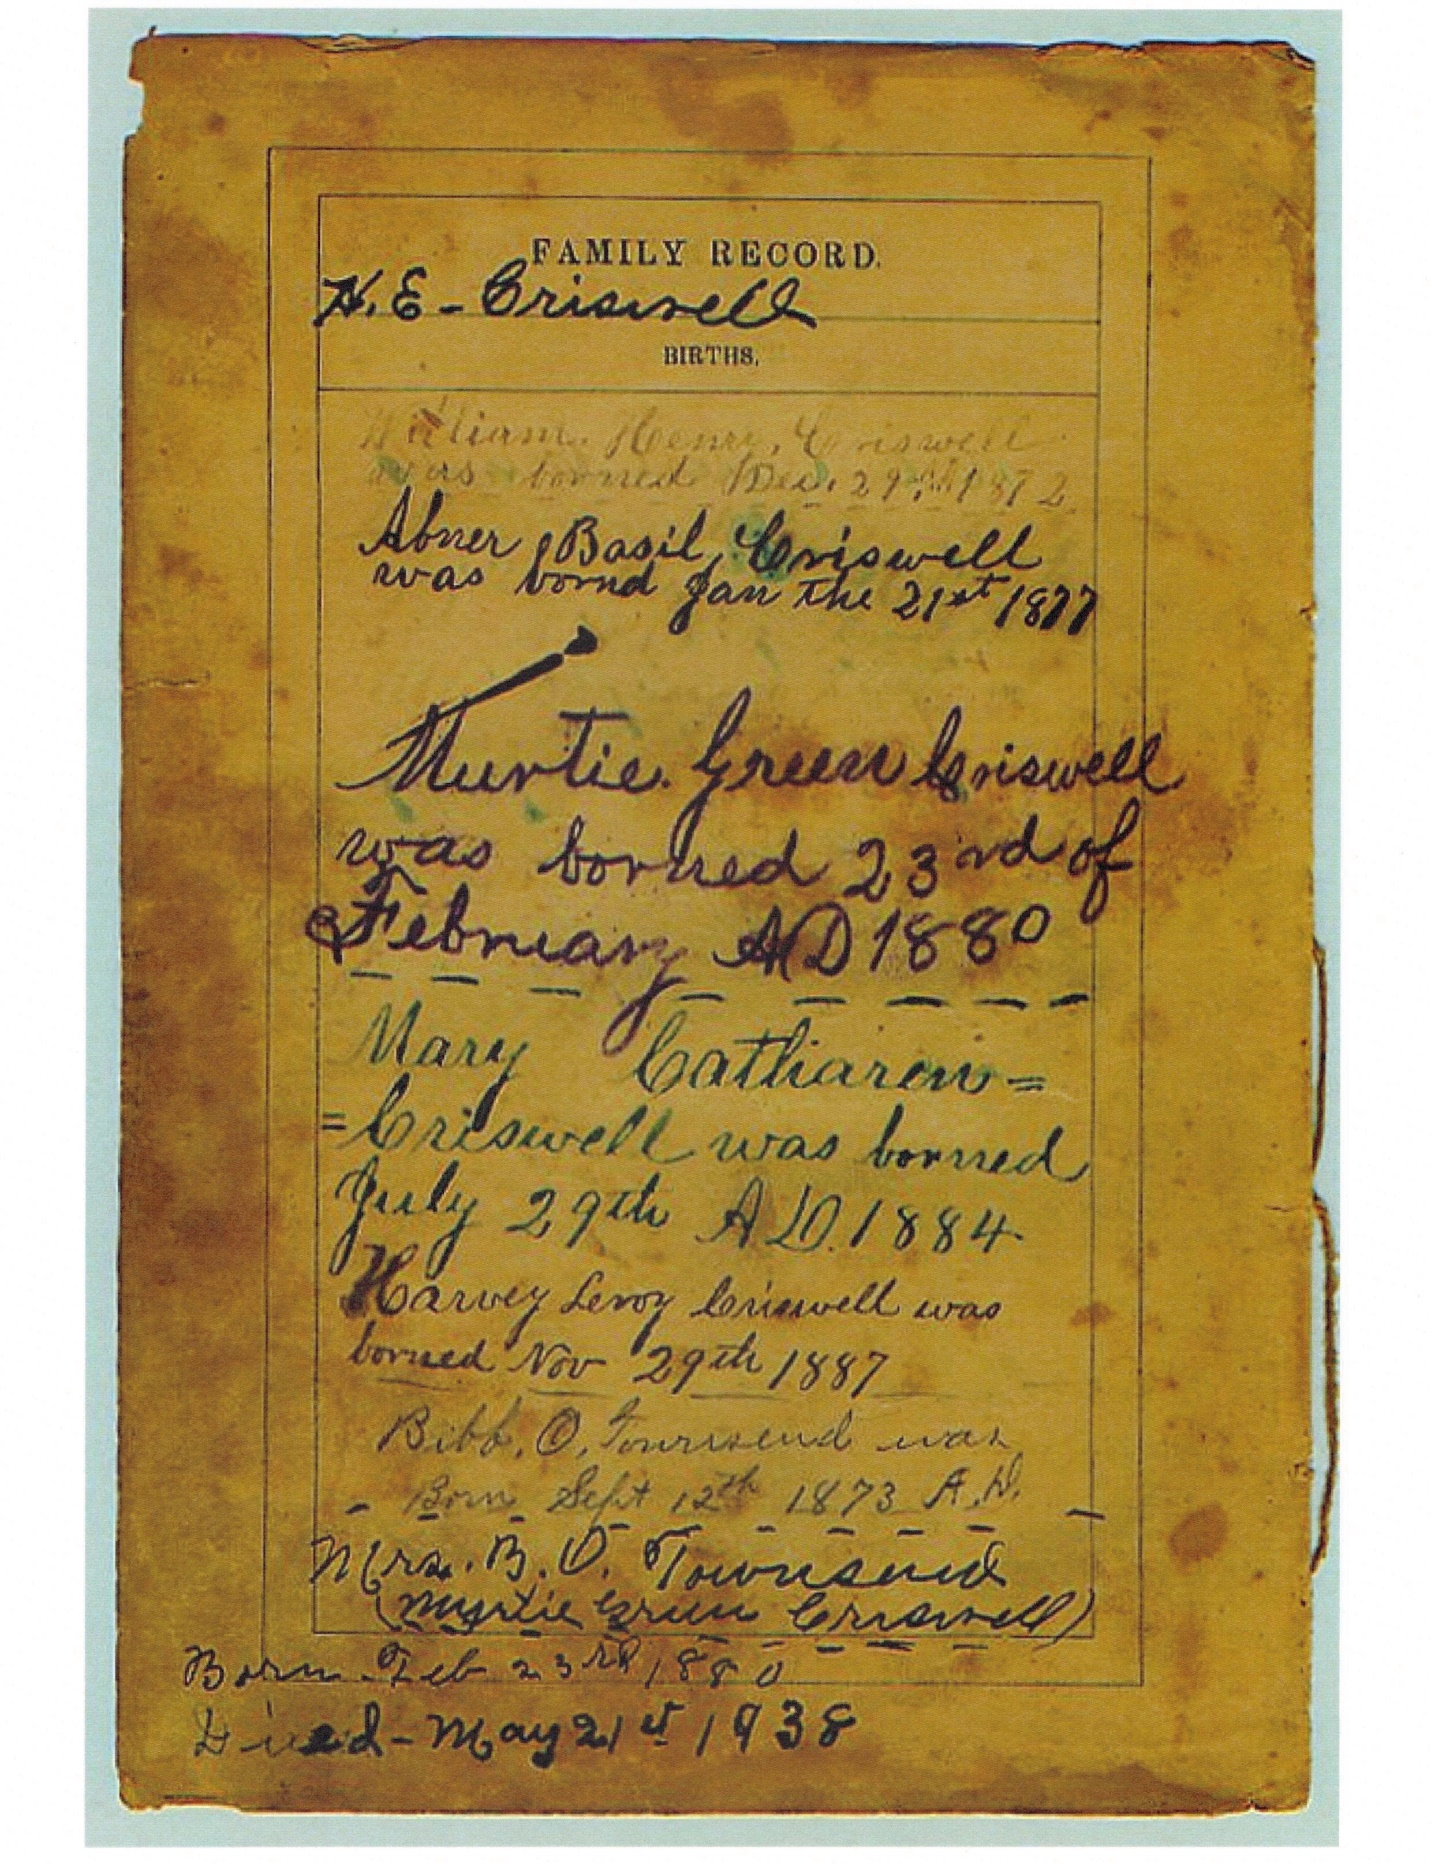 FAMILY RECORD.
H. E - Criswell
BIRTHS.
William. Henry, Criswell
was borned Dec. 29 1872
Abner, Basil, Criswell
was bornd Jan the 21st 1877
Murtie. Green Criswell
was borned 23rd of
February AD 1880
Mary Catharen=
=Criswell was borned
July 29th A D. 1884
Harvey Leroy Criswell was
borned Nov 29th 1887
Bibb. O. Townsend was
- Born Sept 12th 1873 A.D. -
Mrs. B. O. Townsend
(Myrtie Green Criswell)
Born - Feb 23rd 1880
Died - May 21st 1938